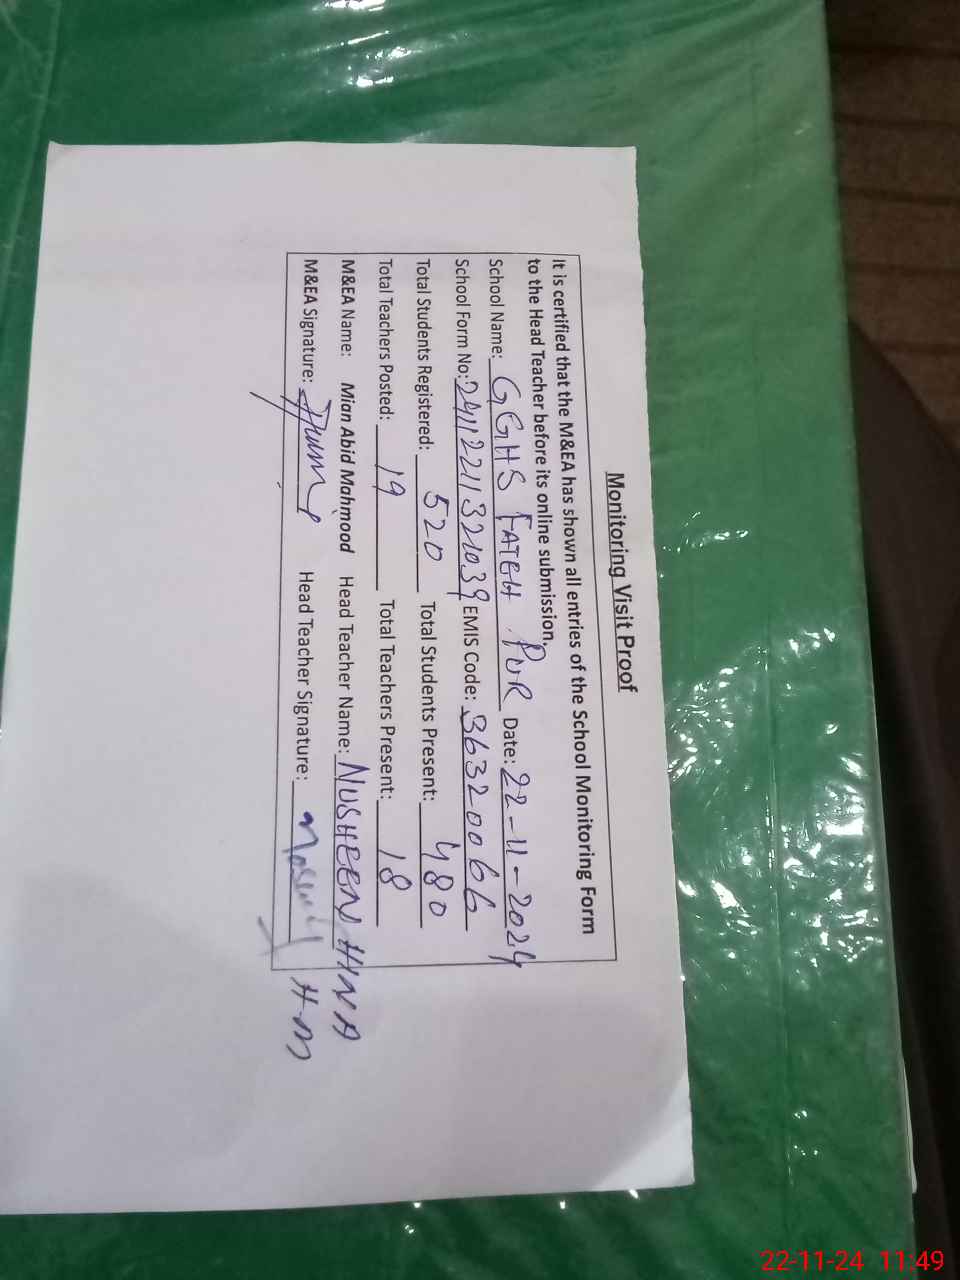 Monitoring Visit Proof
It is certified that the M&EA has shown all entries of the School Monitoring Form
to the Head Teacher before its online submission.
School Name: GGHS FATEH PUR Date: 22-11-2024
School Form No: 24112211321039 EMIS Code: 36320066
Total Students Registered: 520 Total Students Present: 480
Total Teachers Posted: 19 Total Teachers Present: 18
M&EA Name: Mian Abid Mahmood Head Teacher Name: NUSHEEN HINA
M&EA Signature: Head Teacher Signature: H-M
22-11-24 11:49